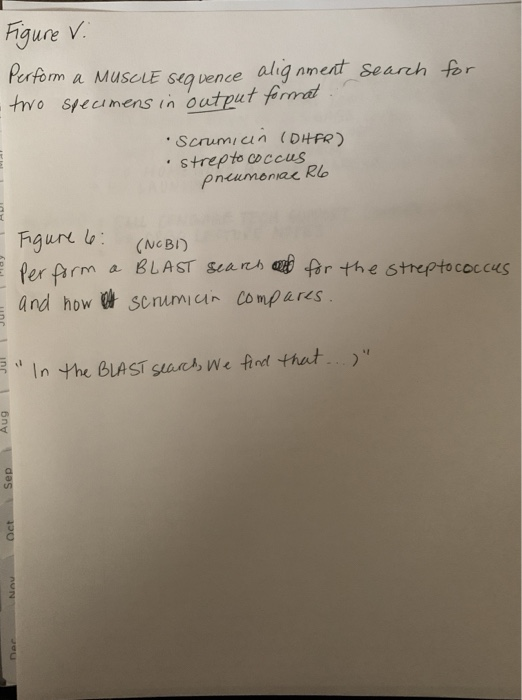 Figure V:
Perform a MUSCLE sequence alignment search for
two specimens in output format.
• Scrumicin (DHFR)
• streptococcus
pneumoniae R6
Figure 6: (NCBI)
Perform a BLAST search for the streptococcus
and how scrumicin compares.
"In the BLAST search, We find that...,"
May
Jun
Jul
Aug
Sep
Oct
Nov
Dec